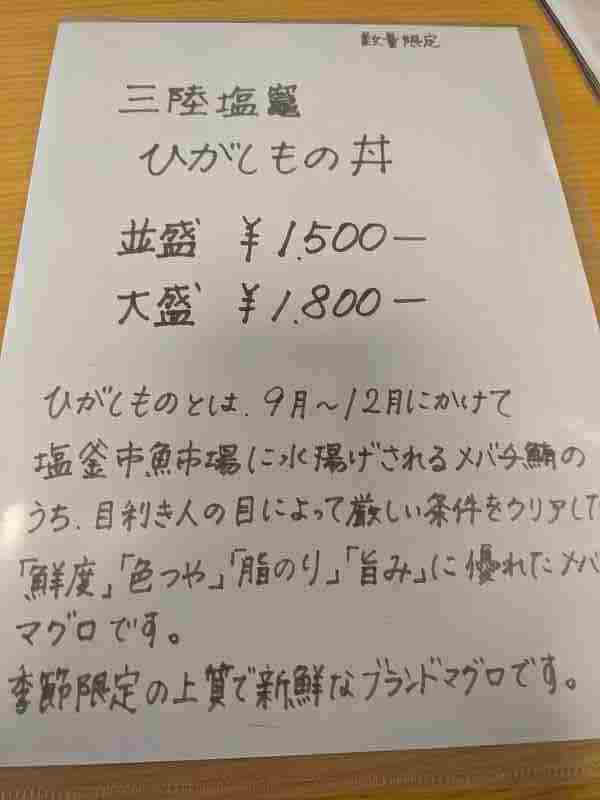 数量限定
三陸塩竈
ひがしもの丼
並盛 ¥1.500ー
大盛 ¥1.800ー
ひがしものとは、9月～12月にかけて
塩釜市魚市場に水揚げされるメバチ鮪の
うち、目利き人の目によって厳しい条件をクリアした
「鮮度」「色つや」「脂のり」「旨み」に優れたメバ
マグロです。
季節限定の上質で新鮮なブランドマグロです。